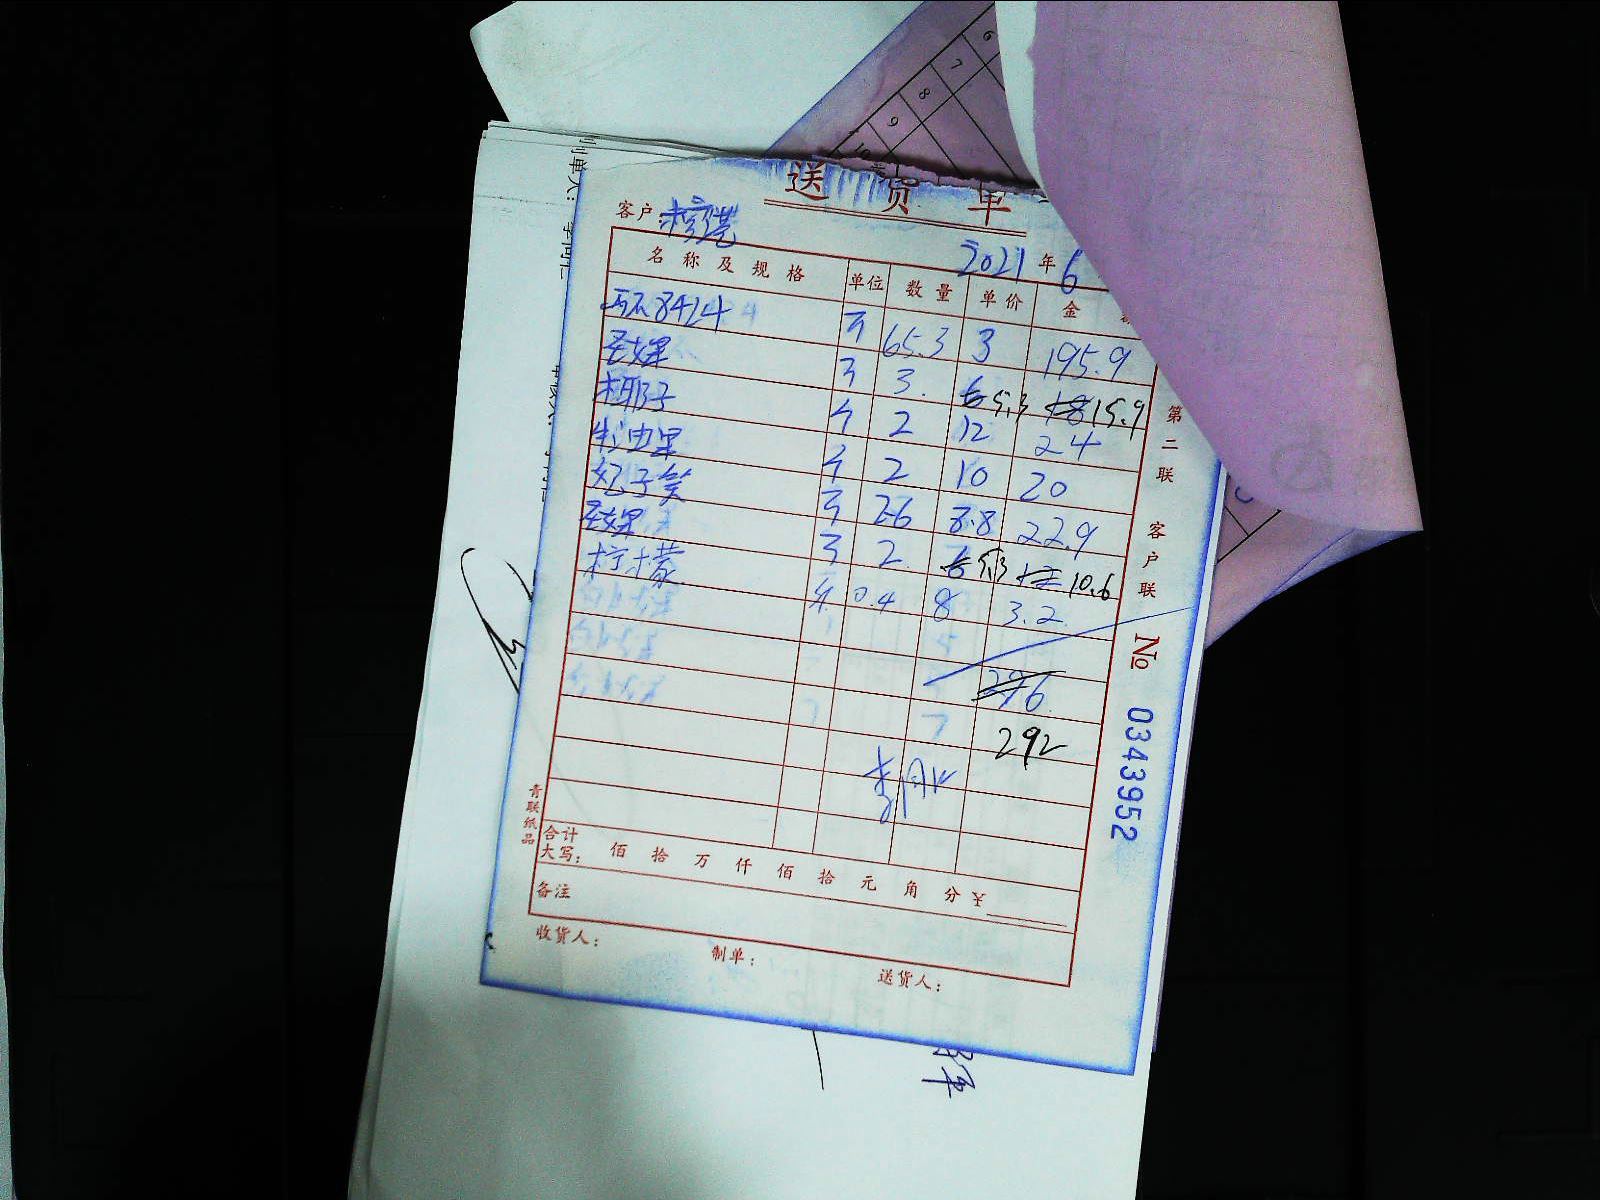 6
7
8
9
10
送 货 单
客户:
2021 年 6
名 称 及 规 格 单位 数 量 单 价 金
8424 斤 65.3 3 195.9
斤 3. 5.3 15.9
椰子 个 2 12 24
牛油果 个 2 10 20
妃子笑 斤 2.6 8.8 22.9
斤 2 5.3 10.6
柠檬 斤 0.4 8 3.2
296
292
合计
大写: 佰 拾 万 仟 佰 拾 元 角 分 ¥
备注
收货人: 制单: 送货人:
第二联 客户联
No 0343952
青联纸品